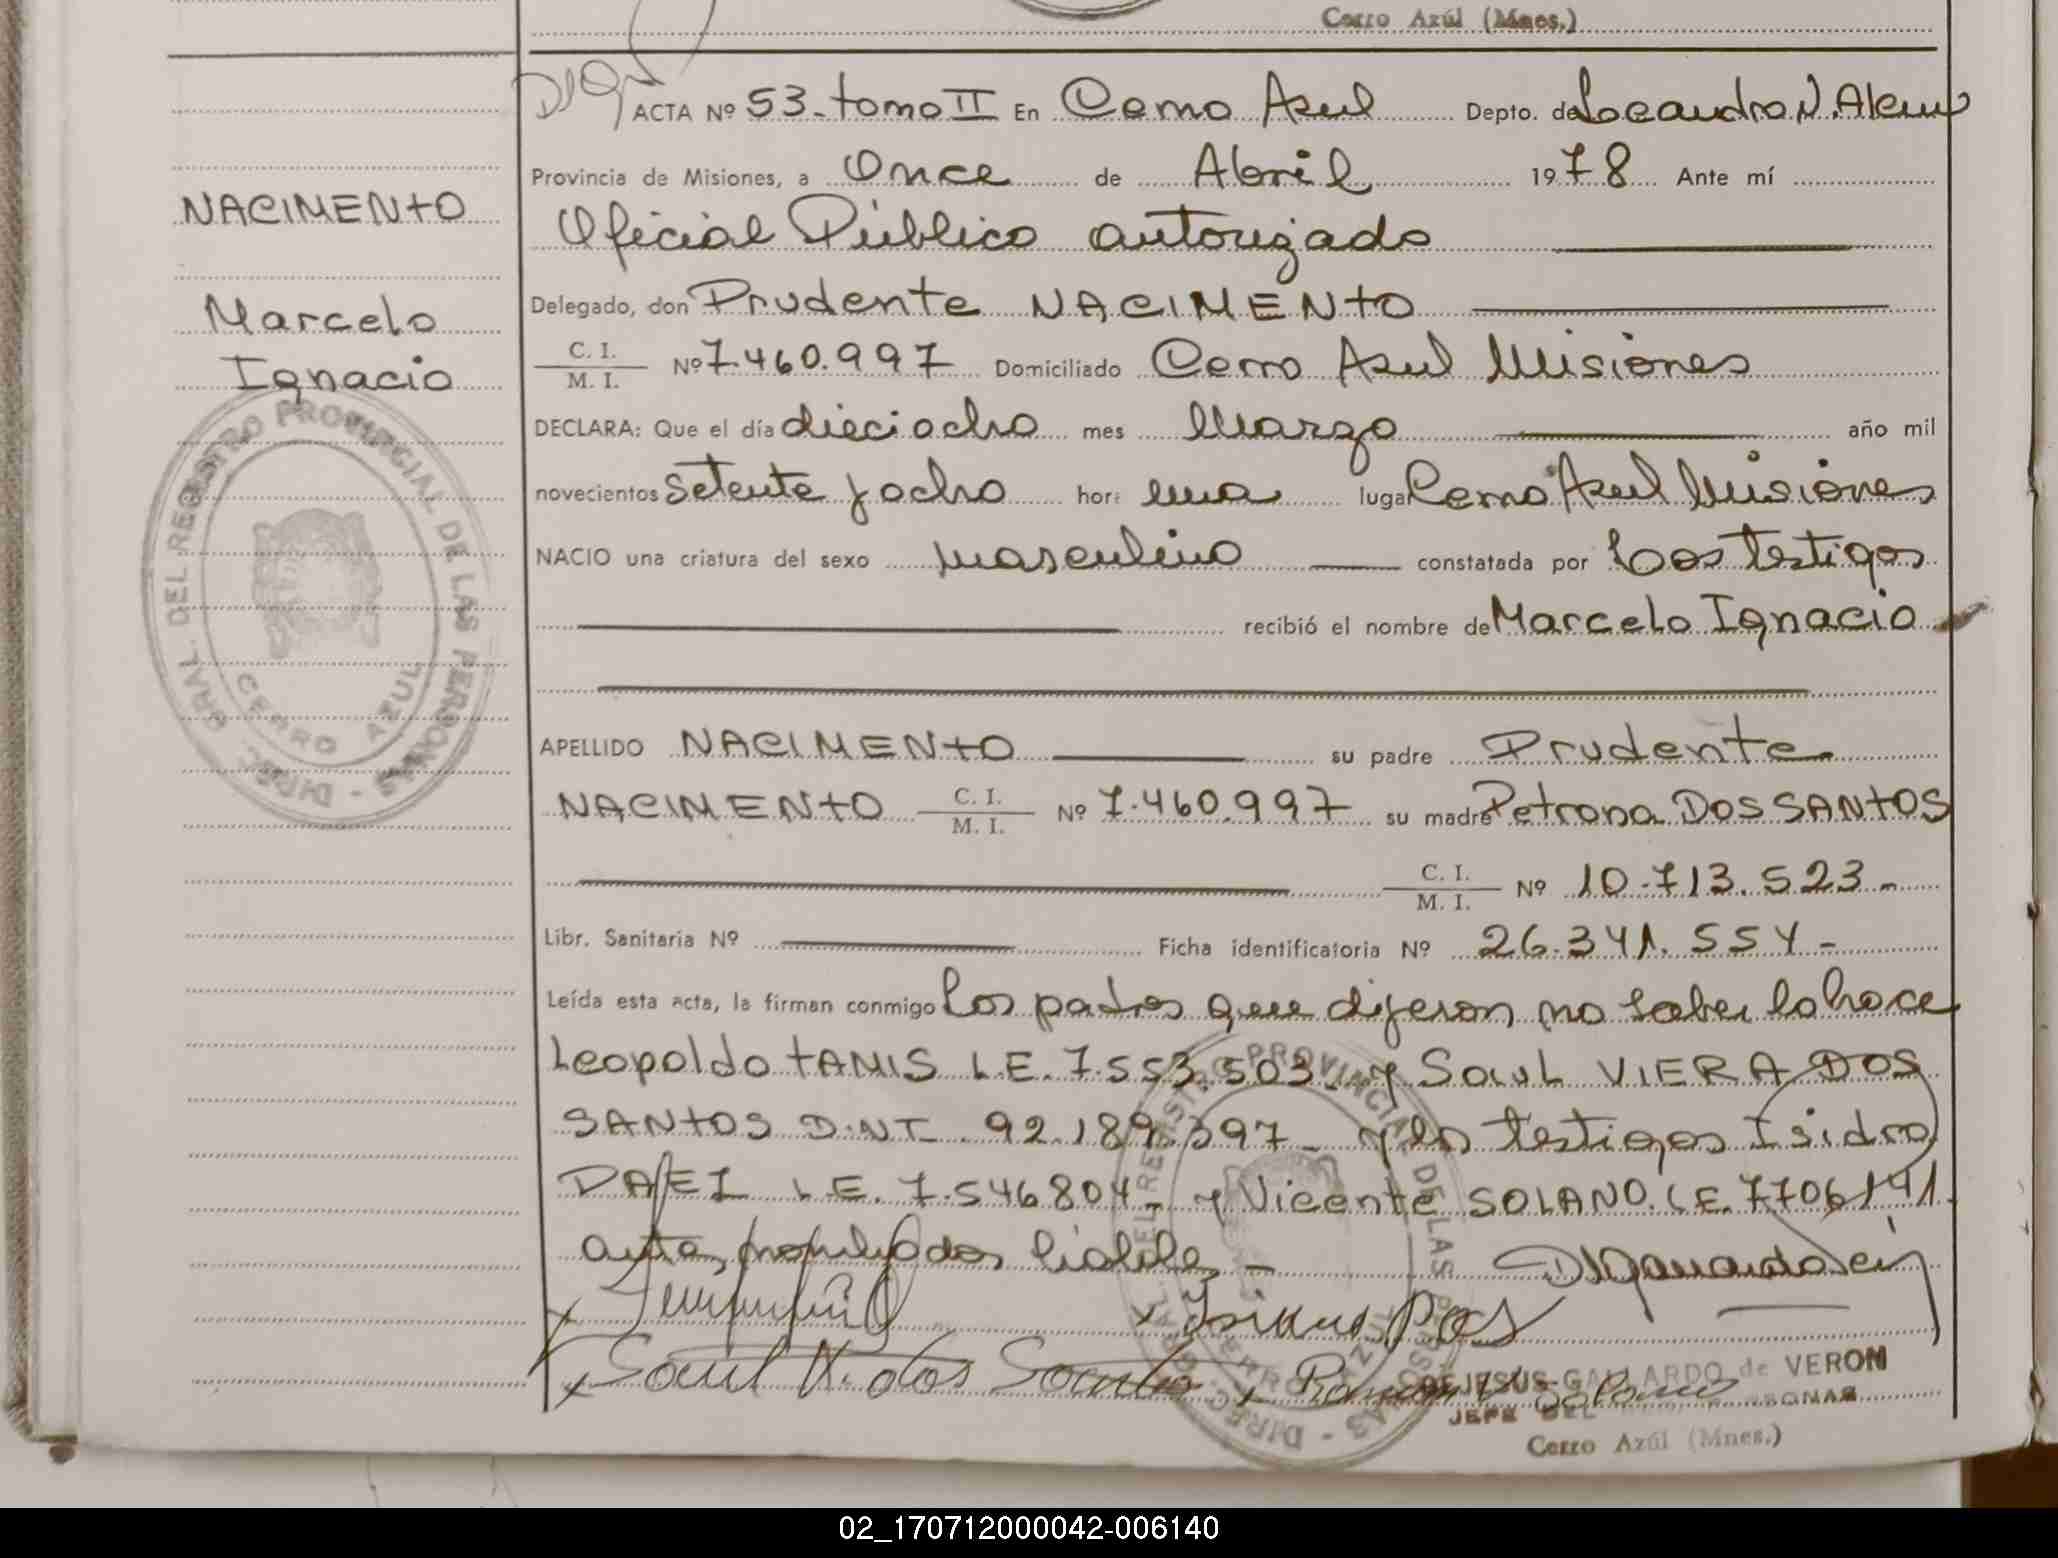 Cerro Azúl (Mnes.)
ACTA Nº 53 - tomo II En Cerro Azul Depto. de Leandro N. Alem
Provincia de Misiones, a Once de Abril 1978 Ante mí
NACIMENTO
Oficial Público autorizado
Marcelo
Delegado, don Prudente NACIMENTO
Ignacio
C. I.
M. I. Nº 7.460.997 Domiciliado Cerro Azul Misiones
DECLARA: Que el día dieciocho mes Marzo año mil
novecientos setenta y ocho hora una lugar Cerro Azul Misiones
NACIO una criatura del sexo masculino constatada por Los testigos
recibió el nombre de Marcelo Ignacio
DIREC. GRAL. DEL REGISTRO PROVINCIAL DE LAS PERSONAS -
CERRO AZUL
APELLIDO NACIMENTO su padre Prudente
NACIMENTO C. I. M. I. Nº 7.460.997 su madre Petrona DOS SANTOS
C. I. M. I. Nº 10.713.523 -
Libr. Sanitaria Nº Ficha identificatoria Nº 26.341.554 -
Leída esta acta, la firman conmigo Los padres que dijeron no saber lo hace
Leopoldo TANIS L.E. 7.553.503 - y Saul VIERA DOS
SANTOS D.N.I. 92.189.397 - y los testigos Isidro
L.E. 7.546804 - y Vicente SOLANO. L.E. 7706191
Saul V. dos Santos
JESUS GALLARDO de VERON
JEFE DEL PERSONAS
Cerro Azúl (Mnes.)
02_170712000042-006140